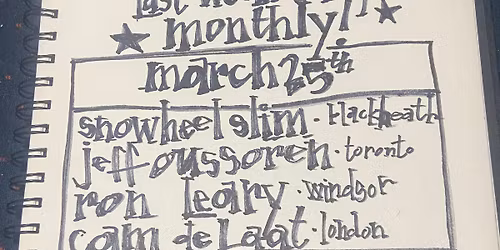 monthly!
march 25th
snowheel slim · blackheath
jeff oussoren · toronto
ron leary · windsor
cam de laat · london